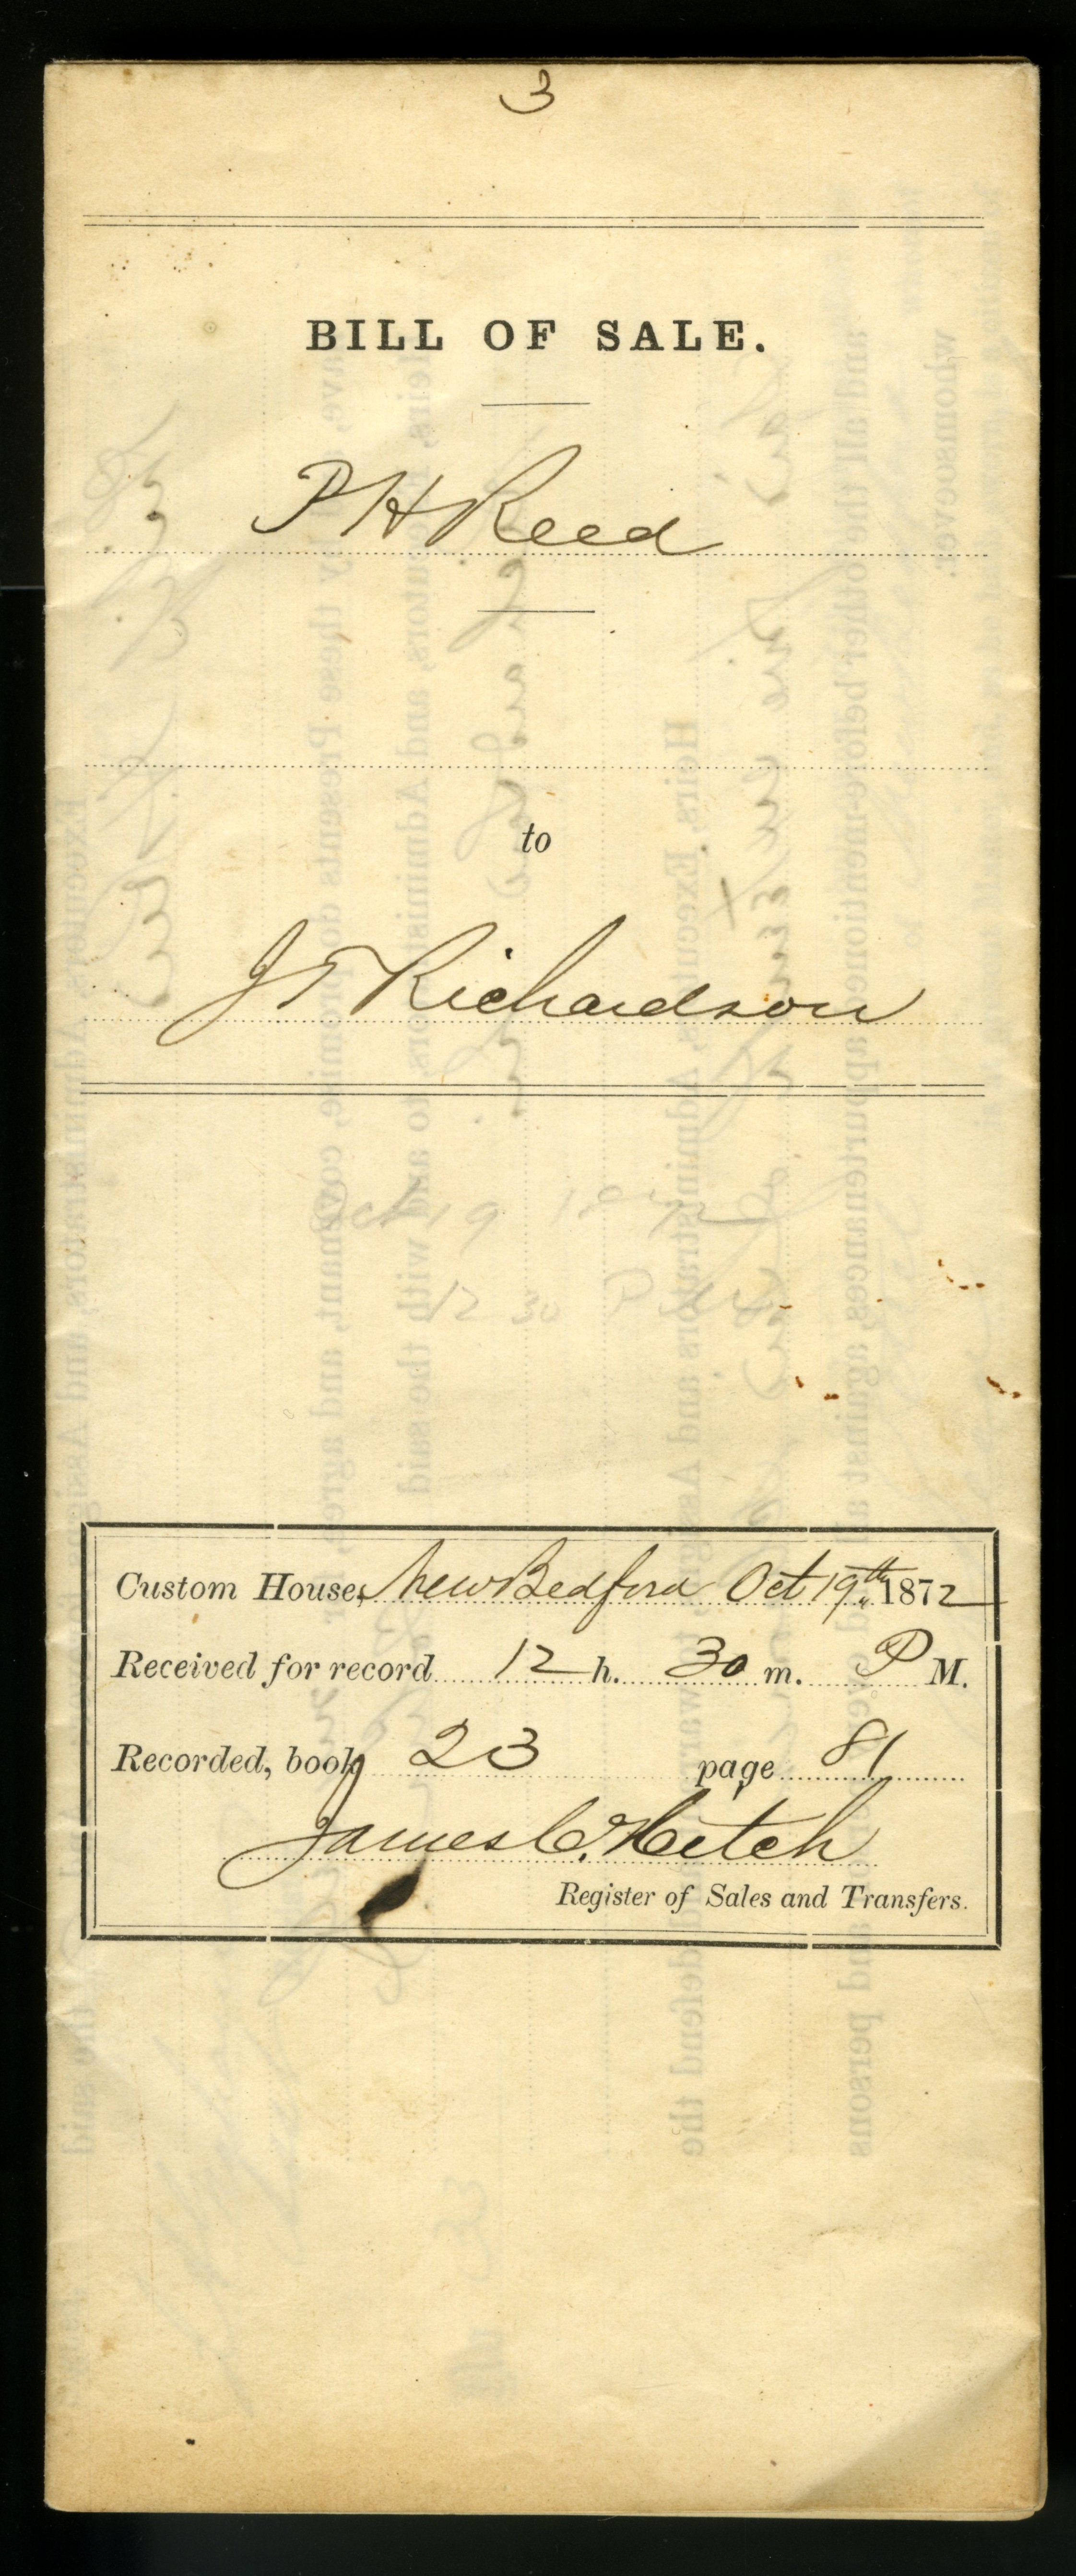 3
BILL OF SALE.
P H Reed
to
J T Richardson
Oct 19 1872
12 30 P M
Custom House, New Bedford Oct 19th 1872
Received for record 12 h. 30 m. P M.
Recorded, book 23 page 81
James C. Hitch
Register of Sales and Transfers.